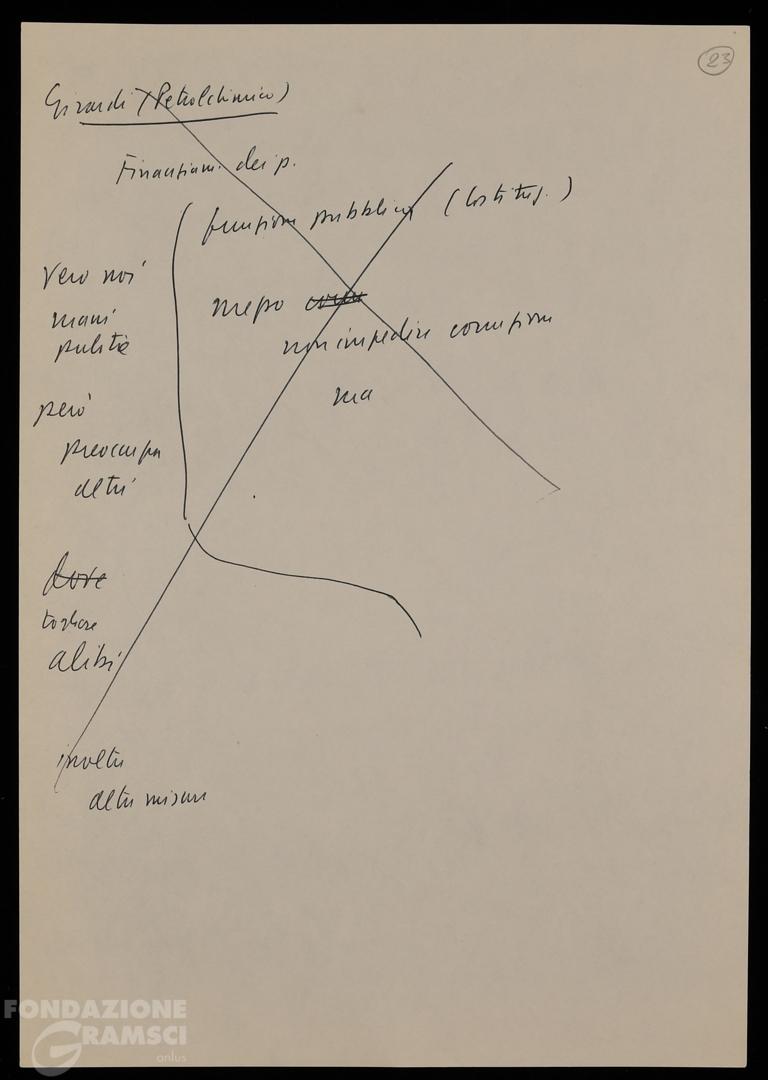 23
Girardi (Petrolchimico)
Finanziam. dei p.
funzione pubblica (Costituz.)
mezzo
non impedire corruzione
ma
Vero noi
mani
pulite
però
preoccupa
altri
dove
togliere
alibi
inoltre
altre misure
FONDAZIONE
GRAMSCI
onlus